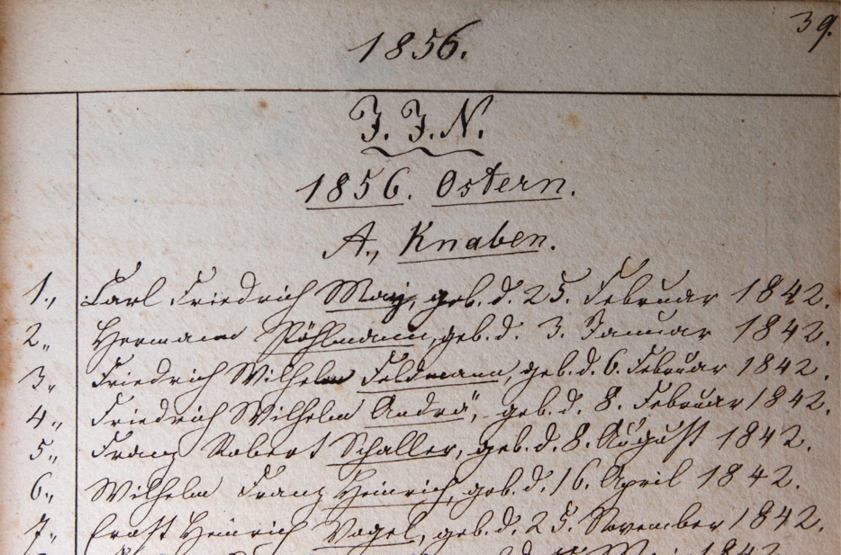 39.
1856.
J. J. N.
1856. Ostern.
A., Knaben.
1., Carl Friedrich May, geb. d. 25. Februar 1842.
2., Hermann Pöhlmann, geb. d. 3. Januar 1842.
3., Friedrich Wilhelm Feldmann, geb. d. 6. Februar 1842.
4., Friedrich Wilhelm Andrä, geb. d. 8. Februar 1842.
5., Franz Robert Schaller, geb. d. 8. August 1842.
6., Wilhelm Franz Heinrich, geb. d. 16. April 1842.
7., Ernst Heinrich Vogel, geb. d. 25. November 1842.
1842.